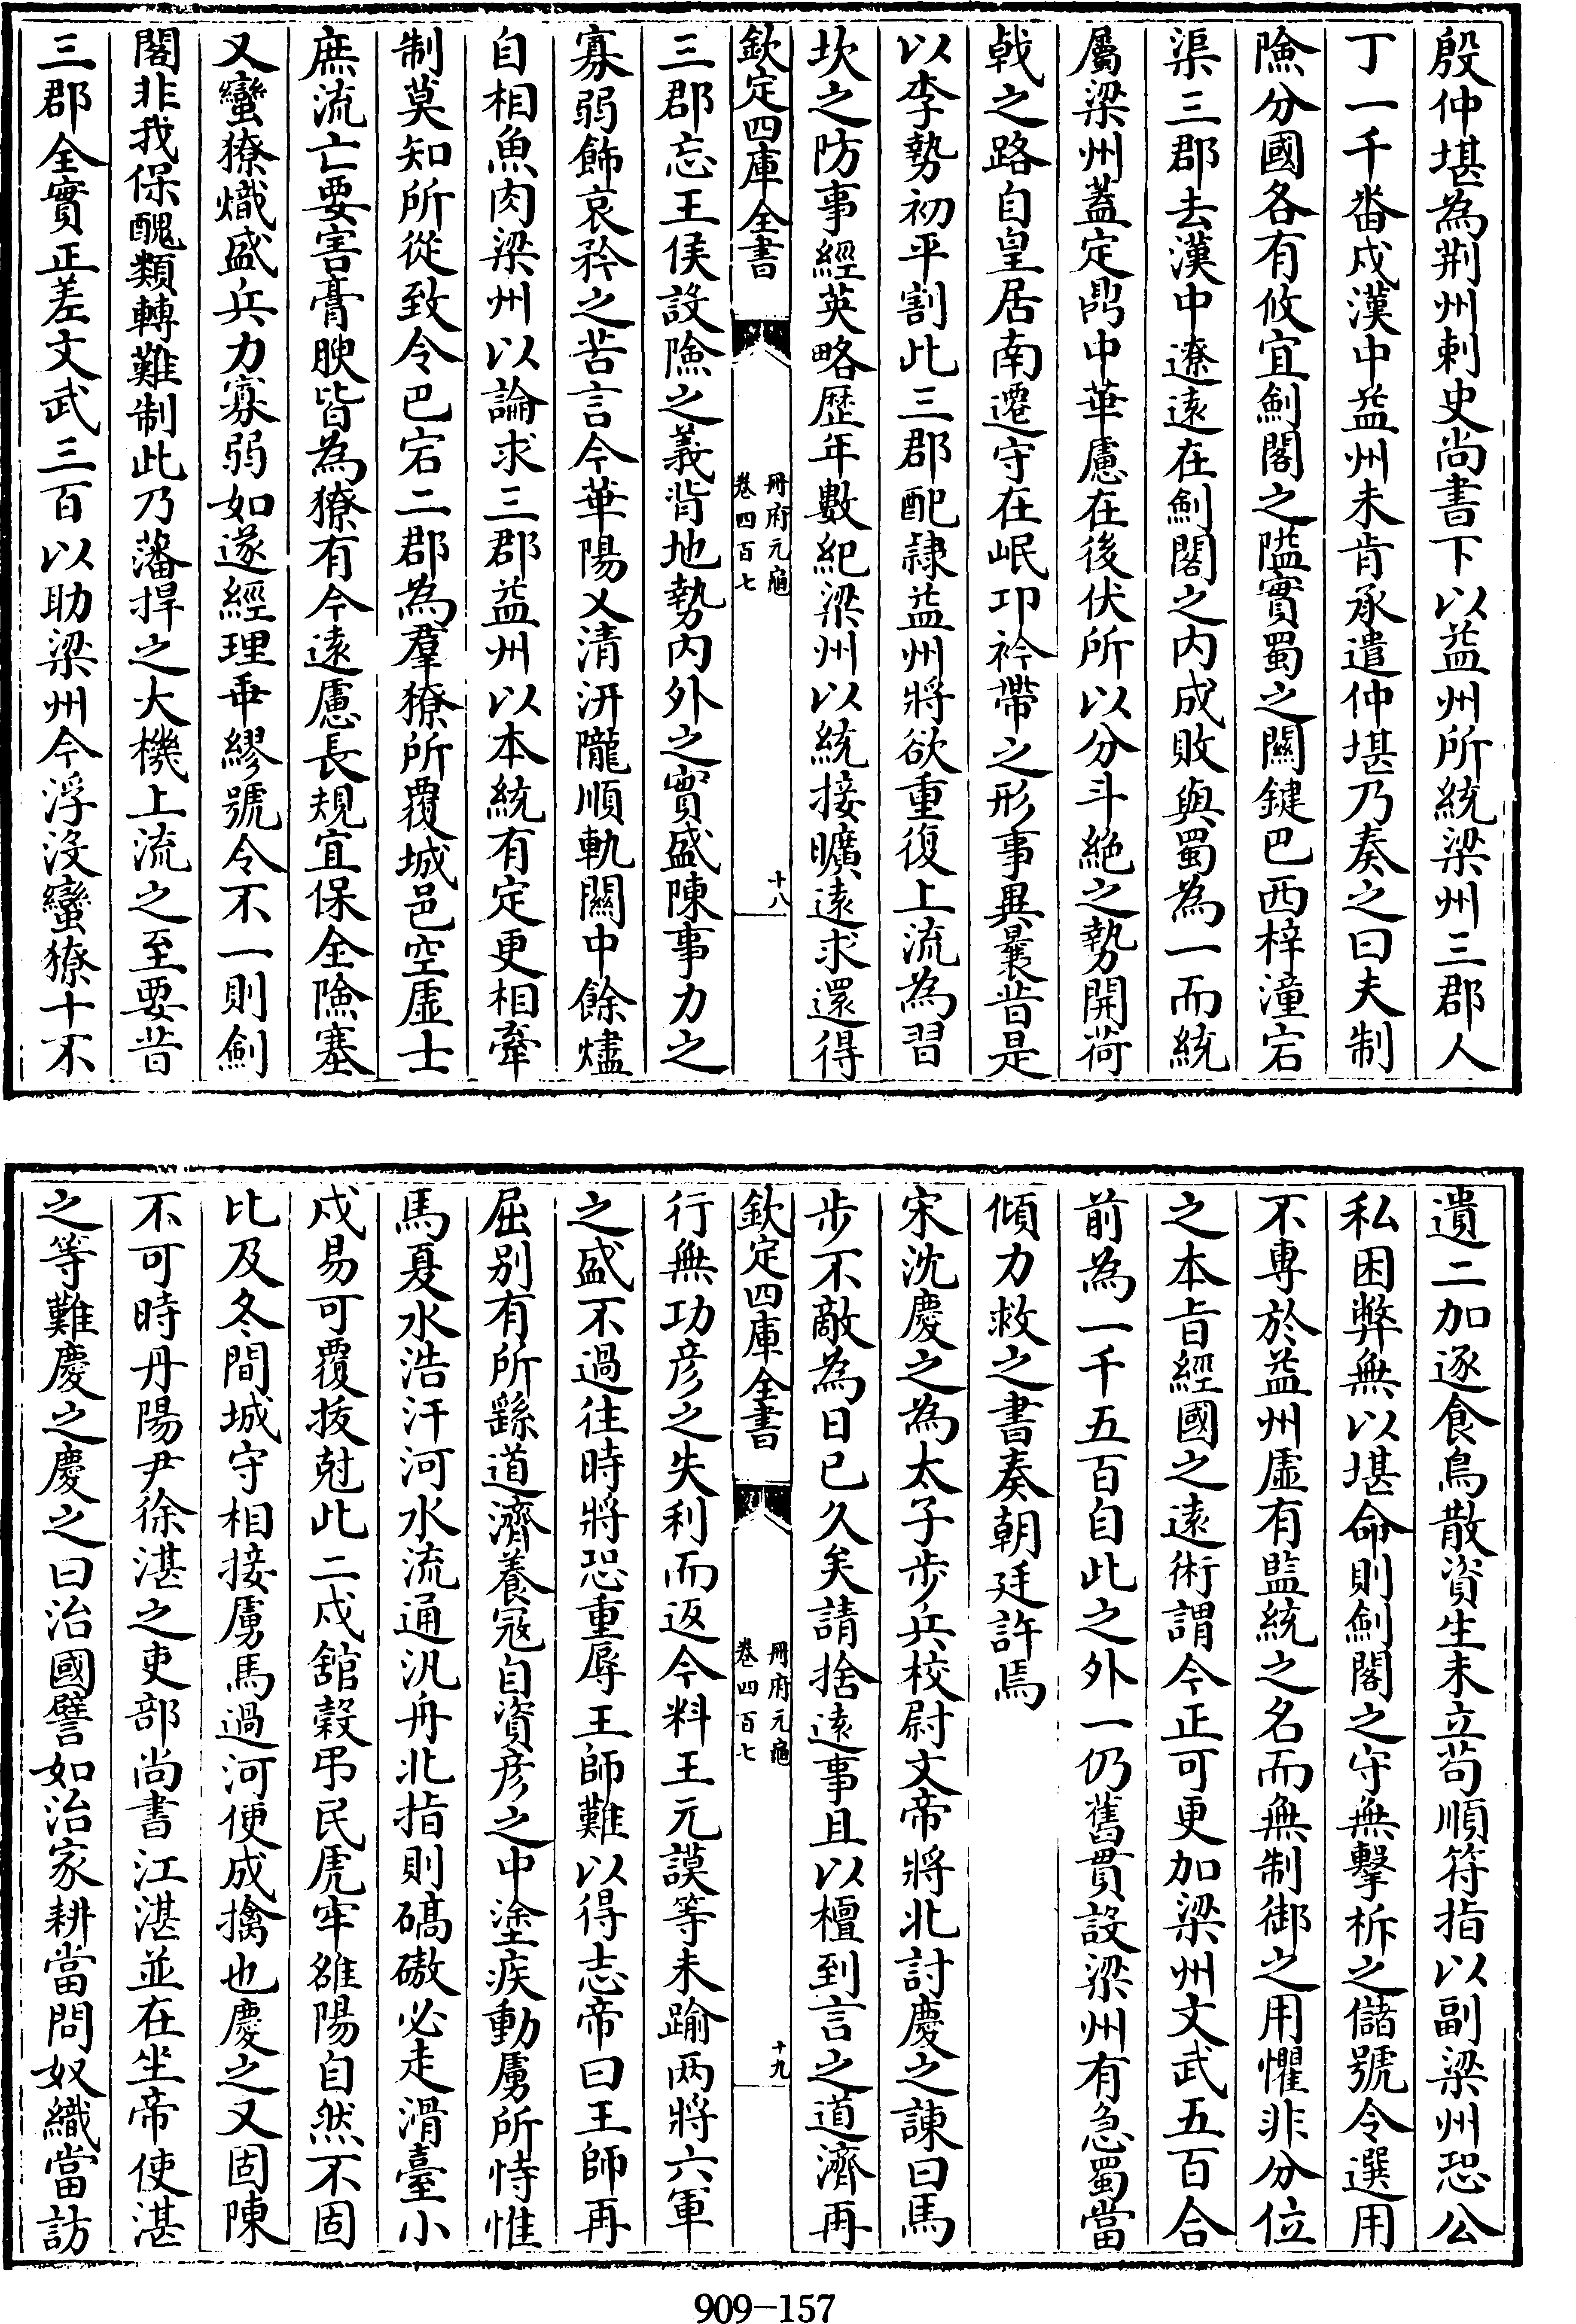 殷仲堪為荆州剌史尚書下以益州所統梁州三郡人
丁一千畨戍漢中益州未肯承遣仲堪乃奏之曰夫制
險分國各有攸宜劎閣之隘實蜀之關鍵巴西梓潼宕
渠三郡去漢中遼遠在劎閣之内成敗與蜀為一而統
屬梁州蓋定鼎中華慮在後伏所以分斗絶之勢開荷
戟之路自皇居南遷守在岷卭衿帶之形事異曩昔是
以李勢初平割此三郡配隷益州將欲重復上流為習
坎之防事經英略歴年數紀梁州以統接曠遠求還得
欽定四庫全書
冊府元龜
卷四百七
十八
三郡忘王侯設險之義背地勢内外之實盛陳事力之
寡弱飾哀矜之苦言今華陽乂清汧隴順軌關中餘燼
自相魚肉梁州以論求三郡益州以本統有定更相牽
制莫知所從致令巴宕二郡為羣獠所覆城邑空虚士
庶流亡要害膏腴皆為獠有今遠慮長規宜保全險塞
又蠻獠熾盛兵力寡弱如遂經理乖繆號令不一則劎
閣非我保醜類轉難制此乃藩捍之大機上流之至要昔
三郡全實正差文武三百以助梁州今浮没蠻獠十不
遺二加逐食鳥散資生未立苟順符指以副梁州恐公
私困弊無以堪命則劎閣之守無擊柝之儲號令選用
不專於益州虚有監統之名而無制御之用懼非分位
之本旨經國之遠術謂今正可更加梁州文武五百合
前為一千五百自此之外一仍舊貫設梁州有急蜀當
傾力救之書奏朝廷許焉
宋沈慶之為太子步兵校尉文帝將北討慶之諫曰馬
步不敵為日已久矣請捨遠事且以檀到言之道濟再
欽定四庫全書
冊府元龜
卷四百七
十九
行無功彦之失利而返今料王元謨等未踰两將六軍
之盛不過往時將恐重辱王師難以得志帝曰王師再
屈别有所繇道濟養冦自資彦之中塗疾動虜所恃惟
馬夏水浩汗河水流通汎舟北指則碻磝必走滑臺小
戍易可覆拔尅此二戍舘穀弔民虎牢雒陽自然不固
比及冬間城守相接虜馬過河便成擒也慶之又固陳
不可時丹陽尹徐湛之吏部尚書江湛並在坐帝使湛
之等難慶之慶之曰治國譬如治家耕當問奴織當訪
909-157